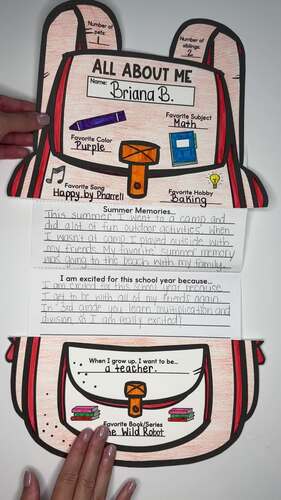 Number of
pets:
1
Number of
siblings:
2
ALL ABOUT ME
Name: Briana B.
Favorite Color
Purple
Favorite Subject
Math
Favorite Song
Happy by Pharrell
Favorite Hobby
Baking
Summer Memories...
This summer I went to a camp and
did alot of fun outdoor activities. When
I wasn't at camp I played outside with
my friends. My favorite summer memory
was going to the beach with my family.
I am excited for this school year because...
I am excited for this school year because
I get to be with all of my friends again.
In 3rd grade you learn multiplication and
division so I am really excited!
When I grow up, I want to be...
a teacher.
Favorite Book/Series
The Wild Robot